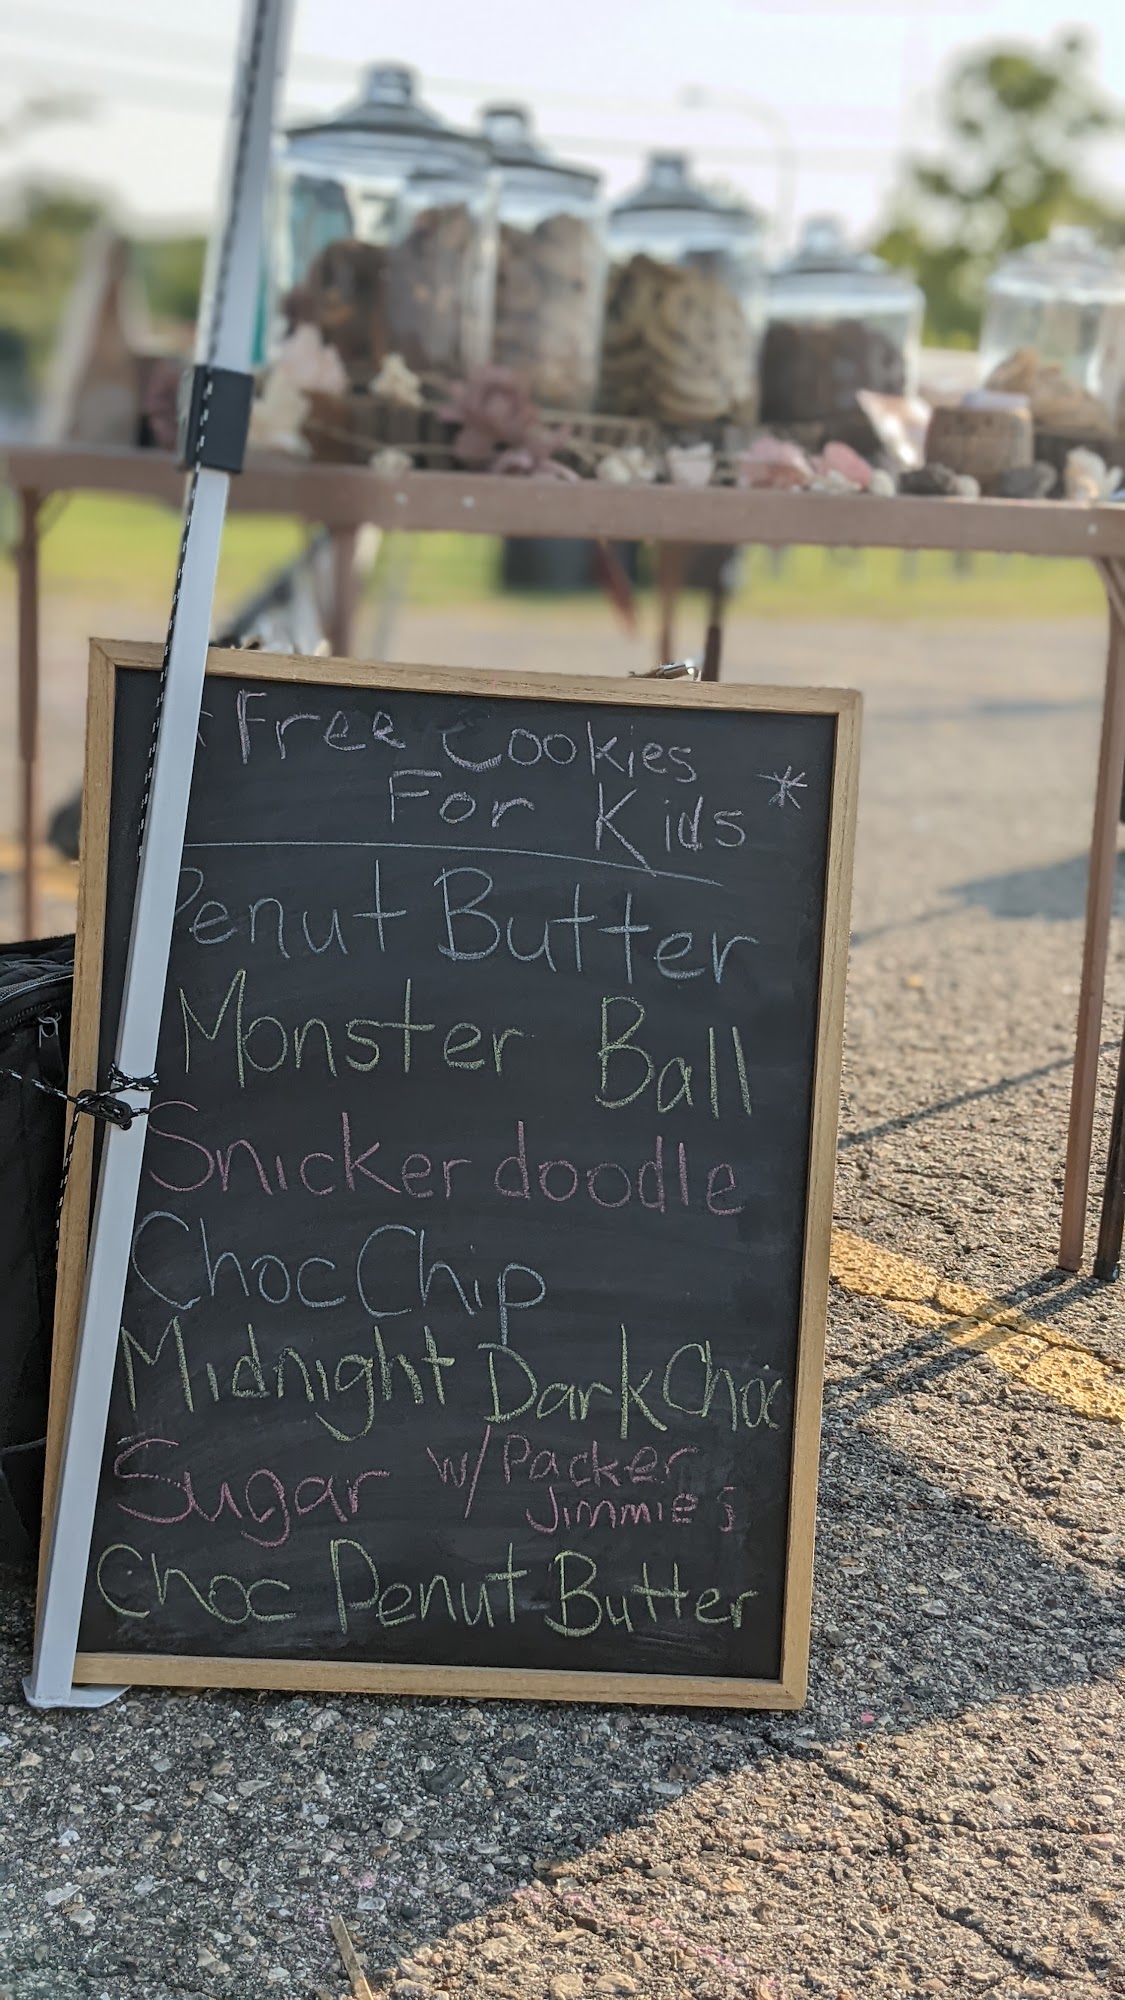 * Free Cookies
For Kids *
Penut Butter
Monster Ball
Snickerdoodle
Choc Chip
Midnight Dark Choc
Sugar w/ Packer
Jimmies
Choc Penut Butter